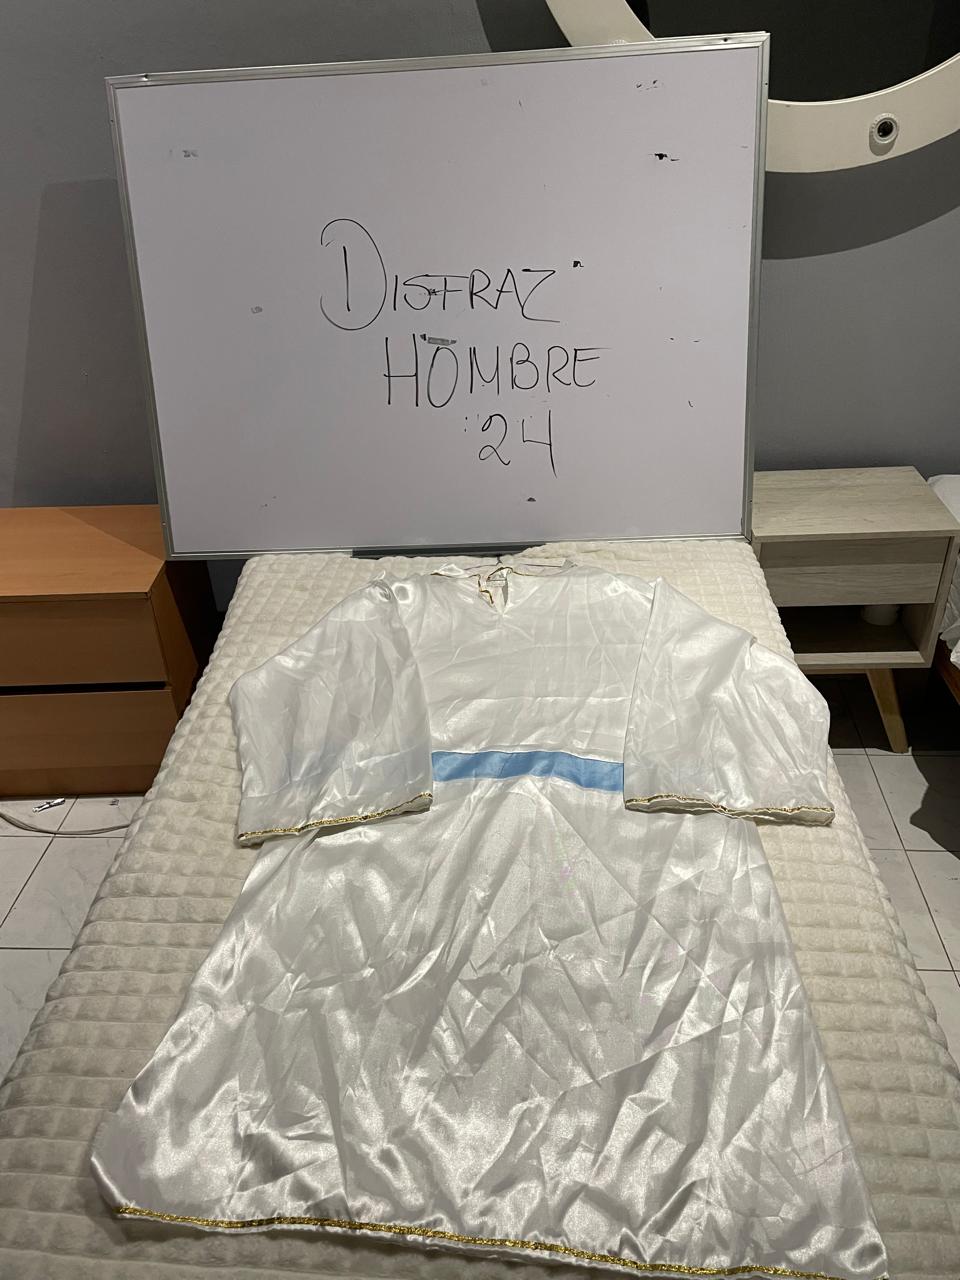 DISFRAZ
HOMBRE
24